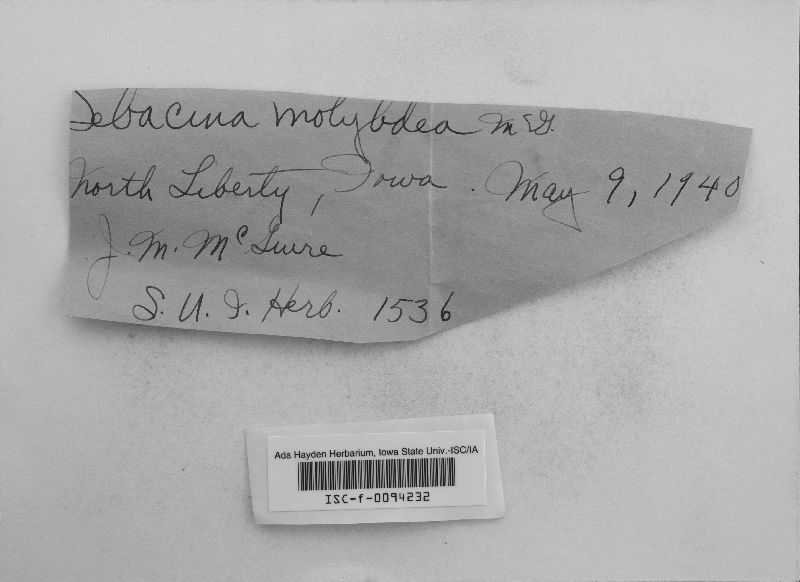 Sebacina molybdea McG.
North Liberty, Iowa. May 9, 1940
J. M. McGuire
S. U. I. Herb. 1536
Ada Hayden Herbarium, Iowa State Univ.-ISC/IA
ISC-f-0094232